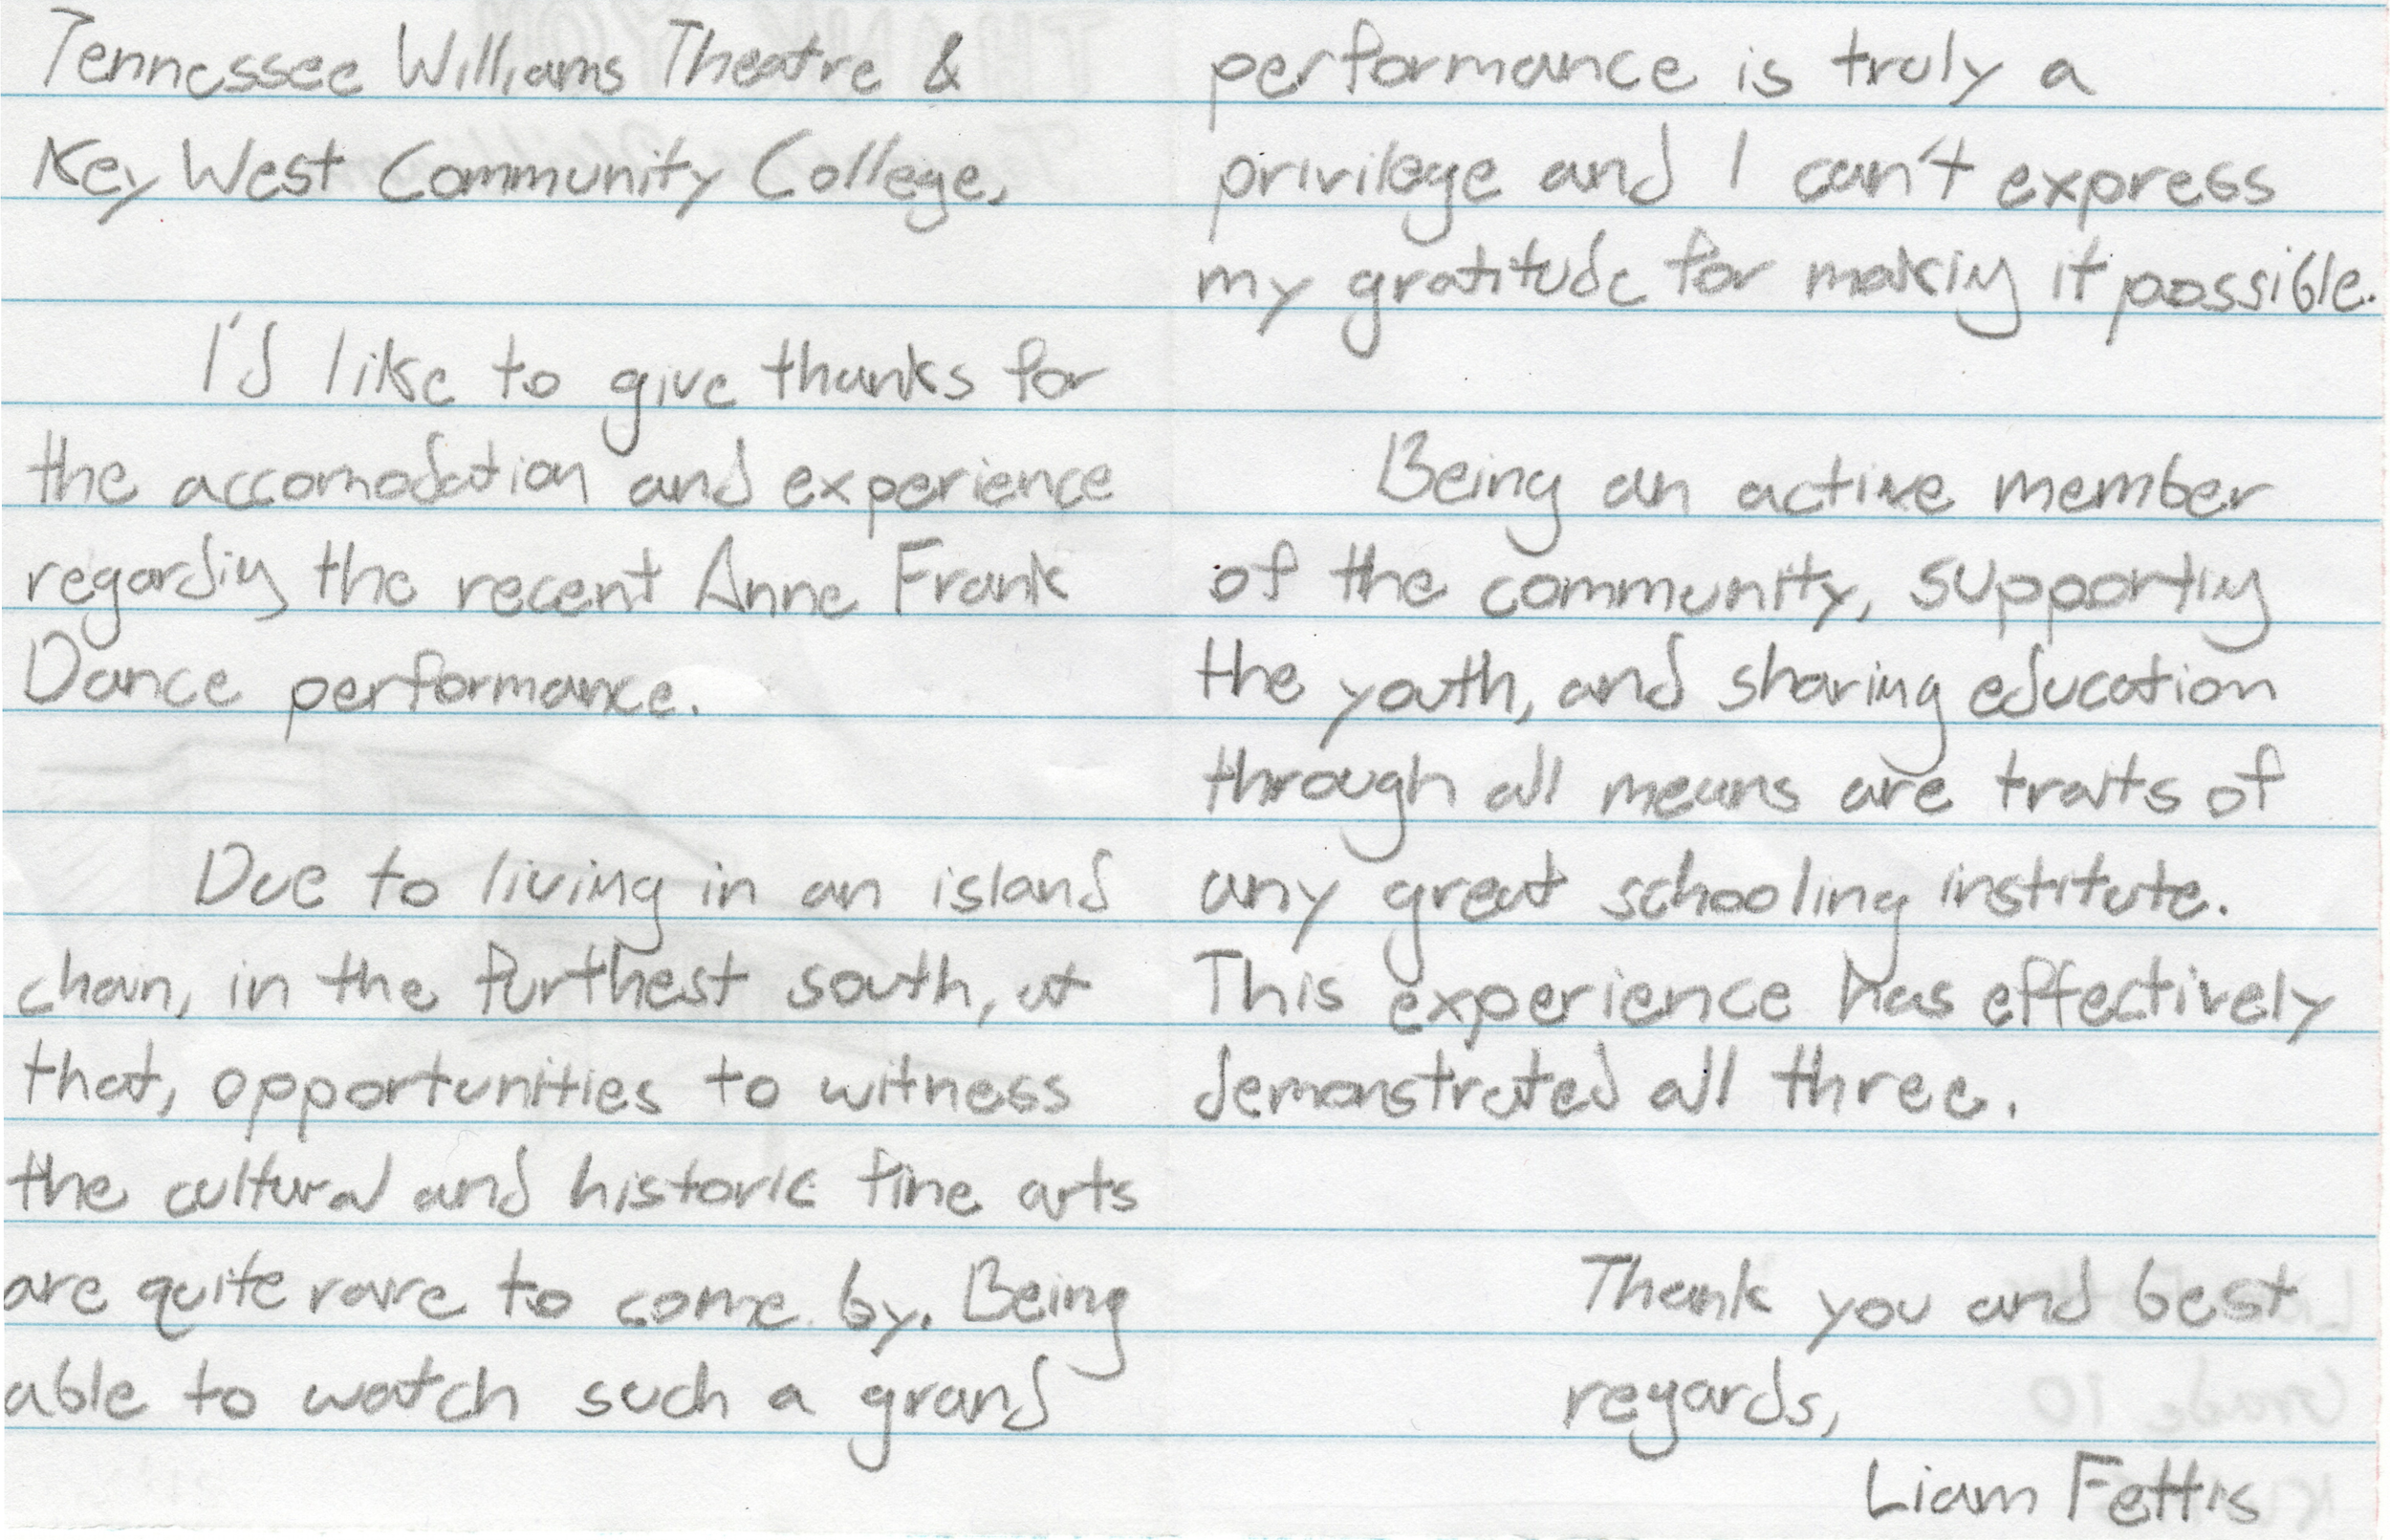 Tennessee Williams Theatre &
Key West Community College,
I'd like to give thanks for
the accomodation and experience
regarding the recent Anne Frank
Dance performance.
Due to living in an island
chain, in the furthest south, at
that, opportunities to witness
the cultural and historic fine arts
are quite rare to come by. Being
able to watch such a grand
performance is truly a
privilege and I can't express
my gratitude for making it possible.
Being an active member
of the community, supporting
the youth, and sharing education
through all means are traits of
any great schooling institute.
This experience has effectively
demonstrated all three.
Thank you and best
regards,
Liam Fettis